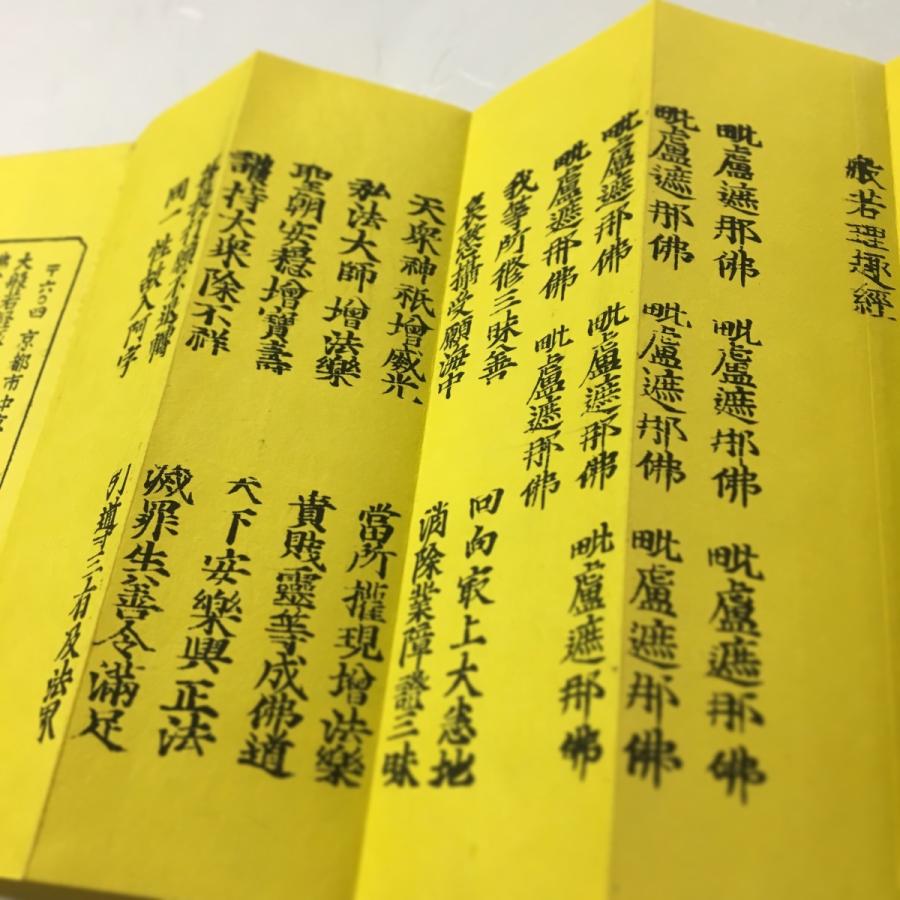 般若理趣經
毗盧遮那佛 毗盧遮那佛 毗盧遮那佛
毗盧遮那佛 毗盧遮那佛 毗盧遮那佛
毗盧遮那佛 毗盧遮那佛 毗盧遮那佛
毗盧遮那佛 毗盧遮那佛
我等所修三昧善 回向最上大悉地
哀愍攝受願海中 消除業障證三昧
天衆神祇增威光 當所權現增法樂
弘法大師增法樂 貴賤靈等成佛道
聖朝安穩增寶壽 天下安樂興正法
護持大衆除不祥 滅罪生善令滿足
菩提行願不退轉 引導三有及法界
同一性故入阿字
〒六〇四 京都市中京
大般若經